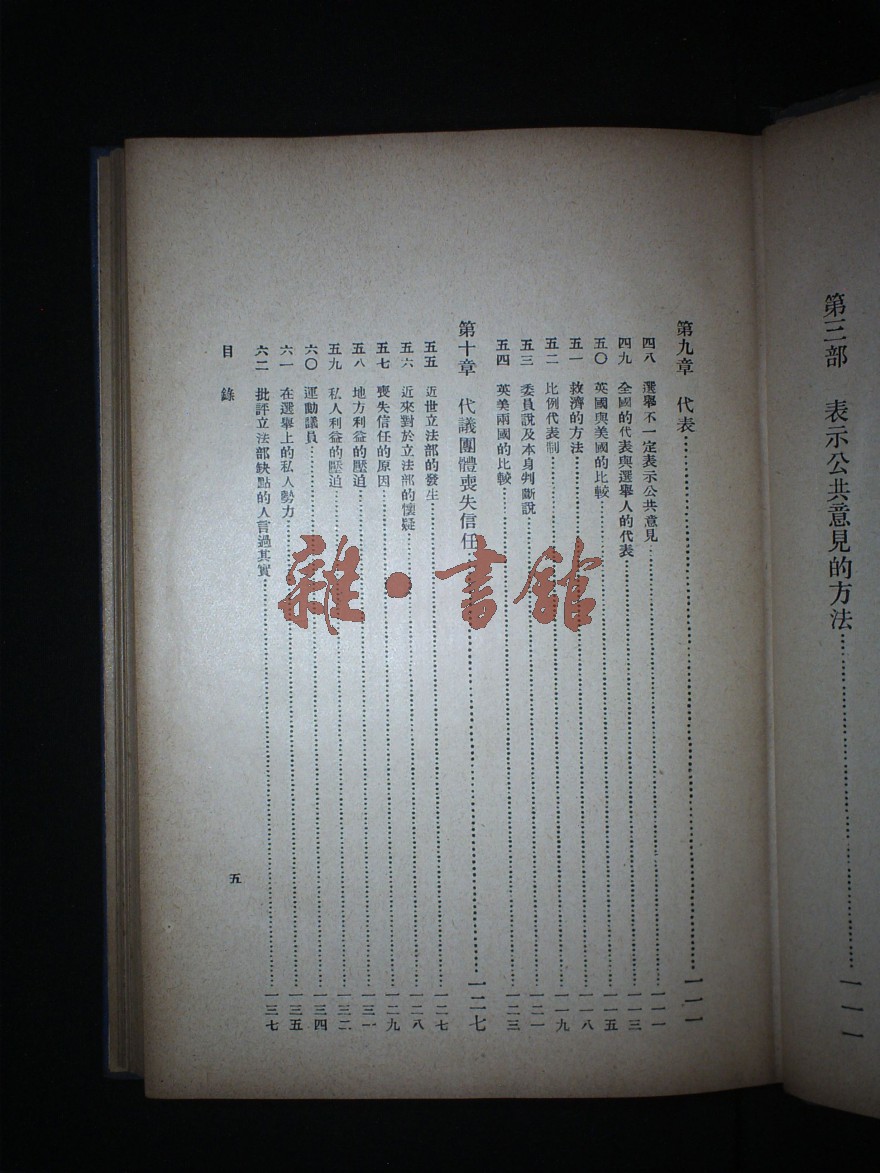 第三部　表示公共意見的方法……一一一
第九章　代表……一一一
四八　選舉不一定表示公共意見……一一一
四九　全國的代表與選舉人的代表……一一三
五〇　英國與美國的比較……一一五
五一　救濟的方法……一一八
五二　比例代表制……一一九
五三　委員說及本身判斷說……一二一
五四　英美兩國的比較……一二三
第十章　代議團體喪失信任……一二七
五五　近世立法部的發生……一二七
五六　近來對於立法部的懷疑……一二八
五七　喪失信任的原因……一二九
五八　地方利益的壓迫……一三一
五九　私人利益的壓迫……一三二
六〇　運動議員……一三四
六一　在選舉上的私人勢力……一三五
六二　批評立法部缺點的人言過其實……一三七
目錄
五
雜·書館